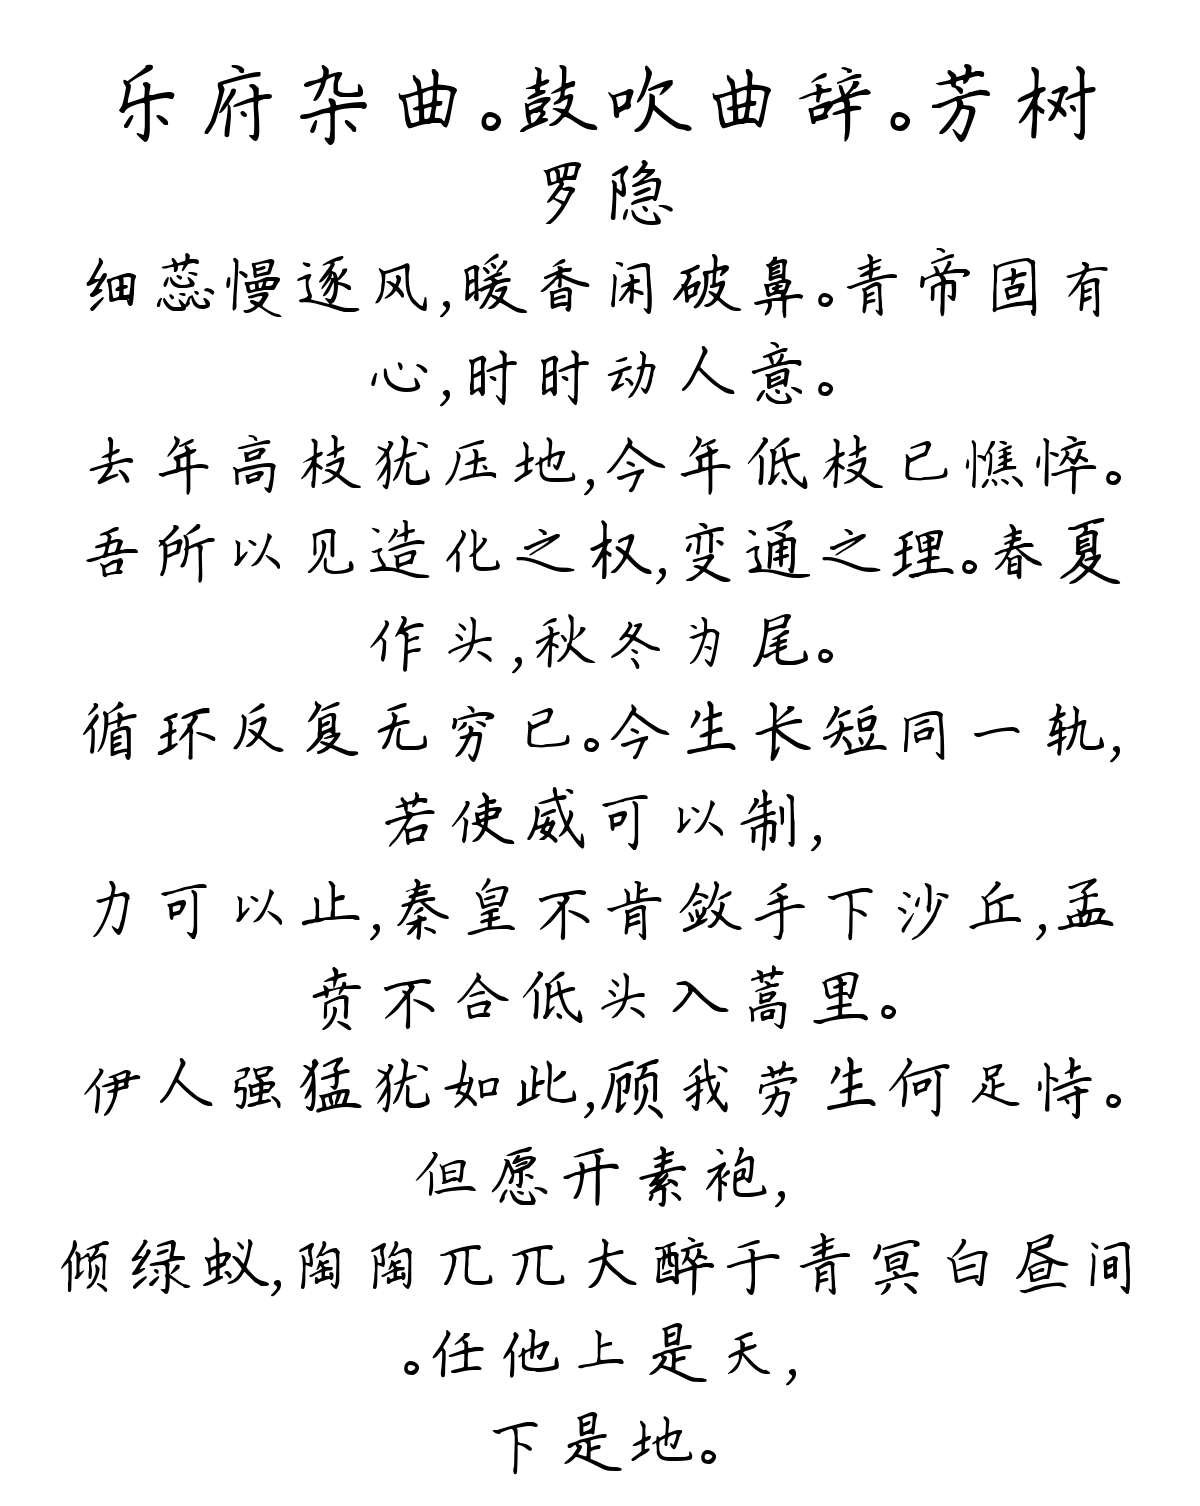 乐府杂曲。鼓吹曲辞。芳树
罗隐
细蕊慢逐风,暖香闲破鼻。青帝固有
心,时时动人意。
去年高枝犹压地,今年低枝已憔悴。
吾所以见造化之权,变通之理。春夏
作头,秋冬为尾。
循环反复无穷已。今生长短同一轨,
若使威可以制,
力可以止,秦皇不肯敛手下沙丘,孟
贲不合低头入蒿里。
伊人强猛犹如此,顾我劳生何足恃。
但愿开素袍,
倾绿蚁,陶陶兀兀大醉于青冥白昼间
。任他上是天,
下是地。